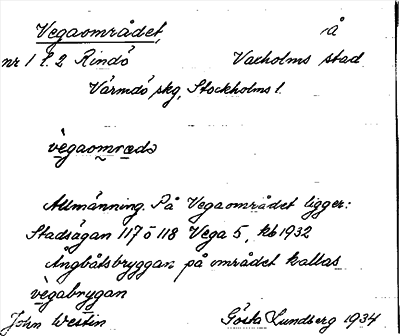 Vegaområdet, på
nr 1 l. 2 Rindö Vaxholms stad
Värmdö skg, Stockholms l.
vègaomræde
Allmänning. På Vegaområdet ligger:
Stadsägan 117 o 118 Vega 5, kb 1932
Ångbåtsbryggan på området kallas
vègabrygan
John Westin Gösta Lundberg 1934